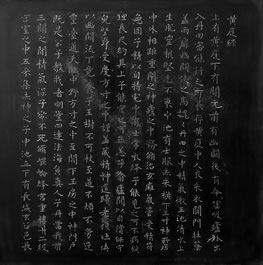 黄庭經
上有黄庭下有關元前有幽闕後有命門嘘吸廬外出
入丹田審能行之可長存黄庭中人衣朱衣關門壮籥
盖兩扉幽闕侠之高巍巍丹田之中精氣微玉池清水上
生肥靈根堅志不衰中池有士服赤朱横下三寸神所居
中外相距重閉之神廬之中務脩治玄膺氣管受精符
急固子精以自持宅中有士常衣絳子能見之可不病
横理長尺約其上子能守之可無恙呼噏廬間以自償保守
完堅身受慶方寸之中謹盖藏精神還歸老復壮侠
以幽闕流下竟養子玉樹不可杖至道不煩不旁迕
靈臺通天臨中野方寸之中至關下玉房之中神門户
既是公子教我者明堂四達法海員真人子丹當我前
三關之間精氣深子欲不死脩崐崘絳宫重樓十二級
宫室之中五采集赤神之子中池立下有長城玄谷邑